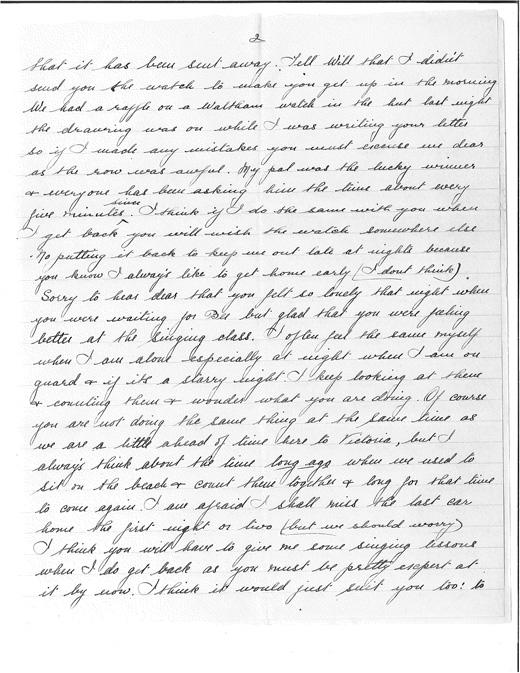 2
that it has been sent away. Tell Will that I didn't
send you the watch to make you get up in the morning
We had a raffle on a Waltham watch in the hut last night
the drawing was on while I was writing your letter
so if I made any mistakes you must excuse me dear
as the row was awful. My pal was the lucky winner
& everyone has been asking him the time about every
five minutes since. I think if I do the same with you when
I get back you will wish the watch somewhere else
No putting it back to keep me out late at nights because
you know I always like to get home early (I dont think).
Sorry to hear dear that you felt so lonely that night when
you were waiting for Bee but glad that you were feeling
better at the singing class. I often feel the same myself
when I am alone especially at night when I am on
guard & if its a starry night I keep looking at them
& counting them & wonder what you are doing. Of course
you are not doing the same thing at the same time as
we are a little ahead of time here to Victoria, but I
always think about the time long ago when we used to
sit on the beach & count them together & long for that time
to come again. I am afraid I shall miss the last car
home the first night or two (but we should worry)
I think you will have to give me some singing lessons
when I do get back as you must be pretty expert at
it by now. I think it would just suit you too: to